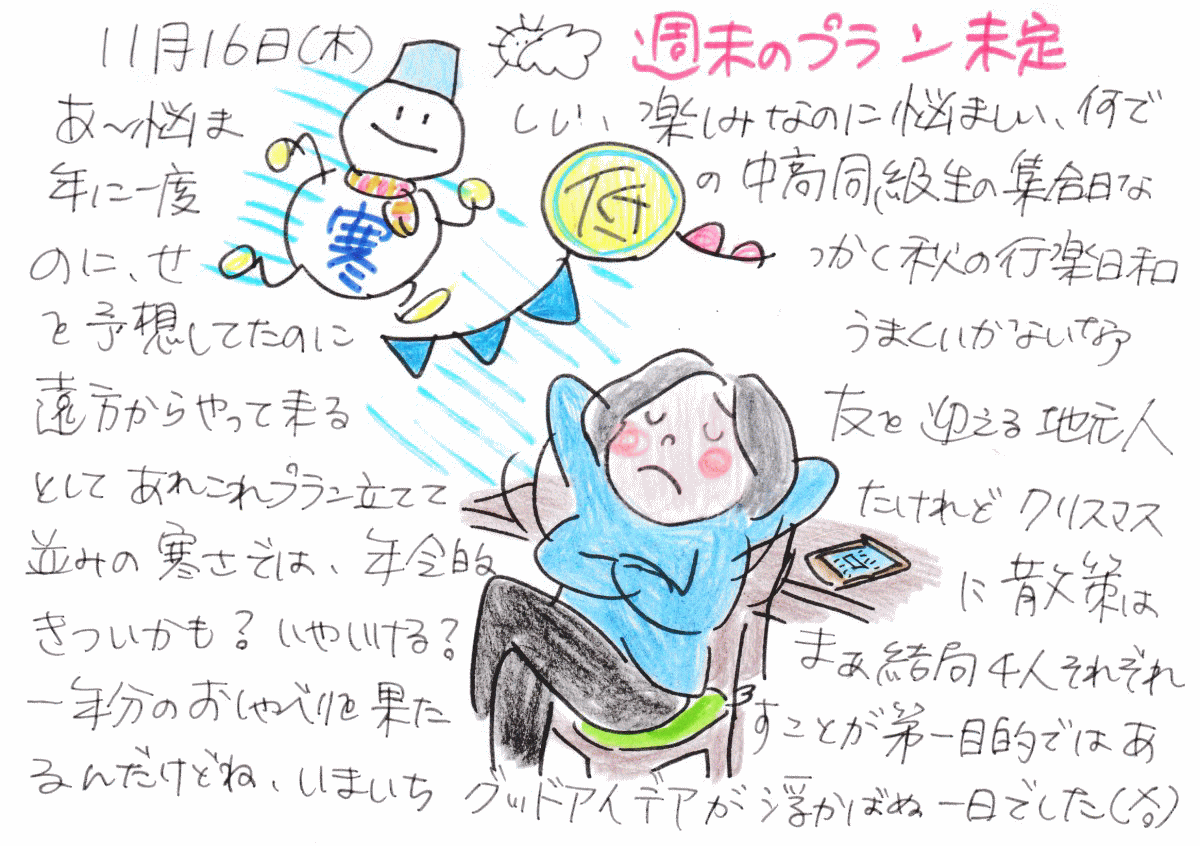 11月16日(木) 週末のプラン未定
あ～悩ましい、楽しみなのに悩ましい、何で
年に一度の中高同級生の集合日な
のに、せっかく秋の行楽日和
と予想してたのにうまくいかないなあ
遠方からやって来る友を迎える地元人
としてあれこれプラン立ててたけれどクリスマス
並みの寒さでは、年令的に散策は
きついかも？いやいける？まぁ結局4人それぞれ
一年分のおしゃべりを果たすことが第一目的ではあ
るんだけどね、いまいちグッドアイデアが浮かばぬ一日でした(^^;)
寒
低